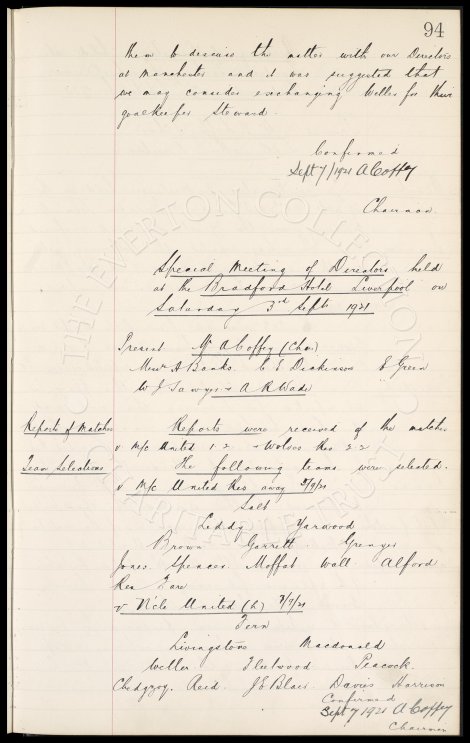 94
them to discuss the matter with our Directors
at Manchester and it was suggested that
we may consider exchanging Weller for their
goalkeeper Steward.
Confirmed
Sept 7/1921 A Coffey
Chairman.
Special Meeting of Directors held
at the Bradford Hotel Liverpool on
Saturday 3rd Septr 1921
Present Mr A Coffey (Chair)
Messrs A Banks. C E Dickinson E Green
W J Sawyer & A R Wade
Reports of Matches
Reports were received of the matches
v M/c United 1-2 & Wolves Res 2-2
Team Selections
The following teams were selected.
v M/c United Res away 3/9/21
Salt
Leddy Yarwood
Brown Garrett Grenyer
Jones Spencer Moffat Wall Alford
Res Fare
v N'cle United (h) 7/9/21
Fern
Livingstone Macdonald
Weller Fleetwood Peacock.
Chedgzoy. Reid. J E Blair. Davies Harrison
Confirmed
Sept 7 1921 A Coffey
Chairman
THE EVERTON COLLECTION
CHARITABLE TRUST